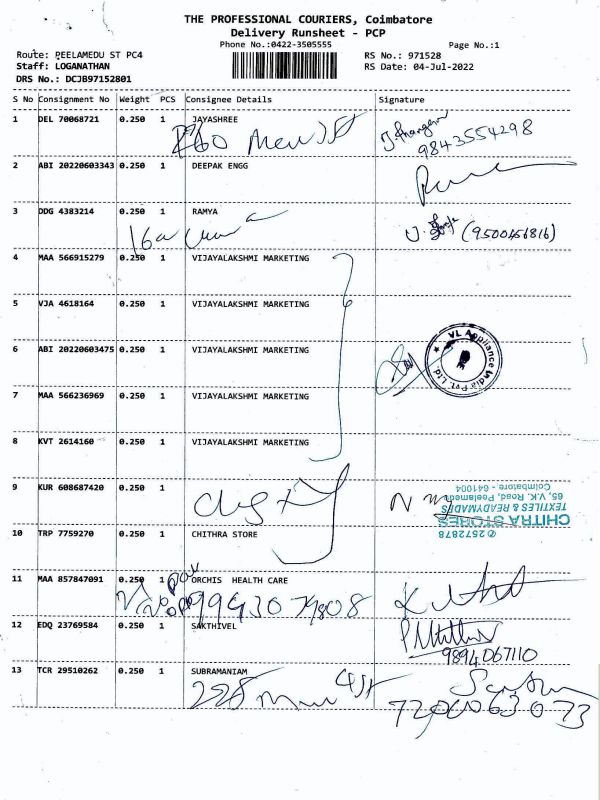 THE PROFESSIONAL COURIERS, Coimbatore
Delivery Runsheet - PCP
Phone No.:0422-3505555
Page No.:1
Route: PEELAMEDU ST PC4
RS No.: 971528
Staff: LOGANATHAN
RS Date: 04-Jul-2022
DRS No.: DCJB97152801
S No Consignment No Weight PCS Consignee Details Signature
1 DEL 70068721 0.250 1 JAYASHREE
9843554298
2 ABI 20220603343 0.250 1 DEEPAK ENGG
3 DDG 4383214 0.250 1 RAMYA
(9500456816)
4 MAA 566915279 0.250 1 VIJAYALAKSHMI MARKETING
5 VJA 4618164 0.250 1 VIJAYALAKSHMI MARKETING
6 ABI 20220603475 0.250 1 VIJAYALAKSHMI MARKETING
VL Appliance India Pvt. Ltd.
7 MAA 566236969 0.250 1 VIJAYALAKSHMI MARKETING
8 KVT 2614160 0.250 1 VIJAYALAKSHMI MARKETING
9 KUR 608687420 0.250 1
✆ 2572878
CHITRA STORES
TEXTILES & READYMADES
65, V.K. Road, Peelamedu,
Coimbatore - 641004
10 TRP 7759270 0.250 1 CHITHRA STORE
11 MAA 857847091 0.250 1 ORCHIS HEALTH CARE
12 EDQ 23769584 0.250 1 SAKTHIVEL
9894067110
13 TCR 29510262 0.250 1 SUBRAMANIAM
228
7200063073